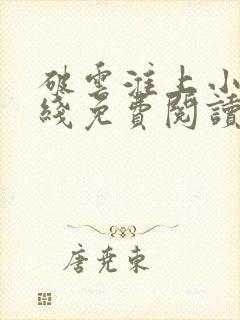 破雲淮上小
綫免費閱讀
唐堯東